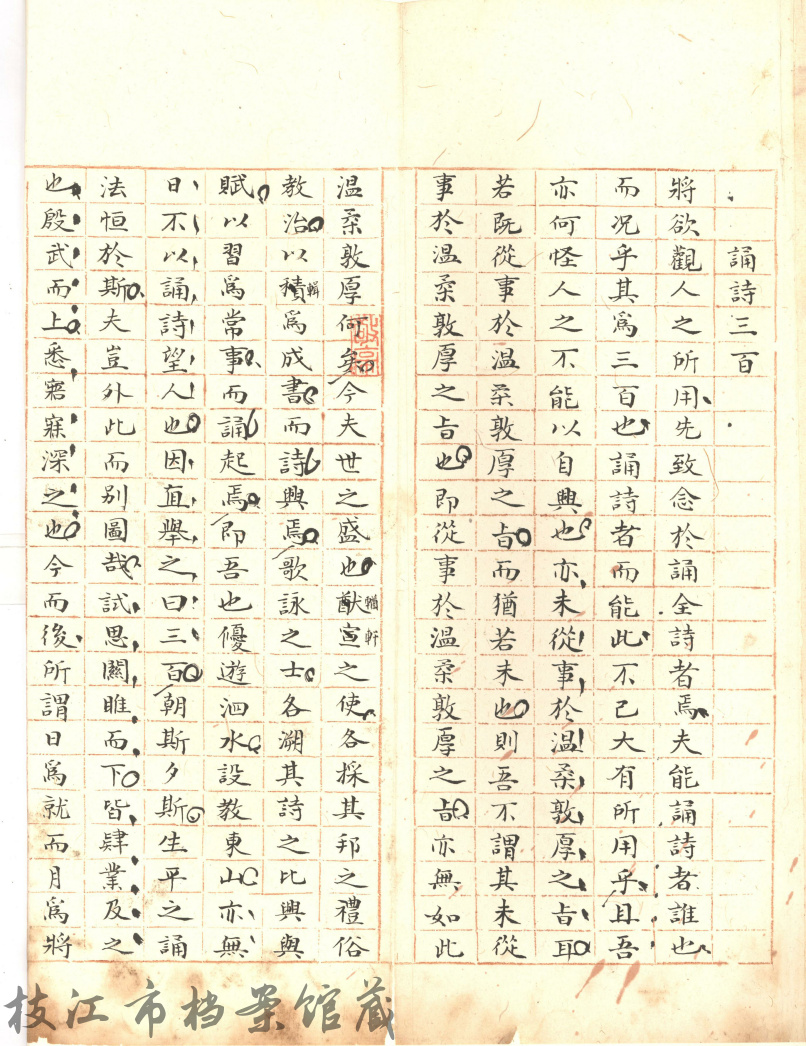 誦詩三百
將欲觀人之所用先致念於誦全詩者焉夫能誦詩者誰也
而況乎其為三百也誦詩者而能此不已大有所用乎且吾
亦何怪人之不能以自興也亦未從事於温柔敦厚之旨耳
若既從事於温柔敦厚之旨而猶若未也則吾不謂其未從
事於温柔敦厚之旨也即從事於温柔敦厚之旨亦無如此
温柔敦厚何矣今夫世之盛也猷宣之使各採其邦之禮俗
輶軒
教治以積為成書而詩興焉歌詠之士各溯其詩之比興與
輯
賦以習為常事而誦起焉即吾也優遊泗水設教東山亦無
日不以誦詩望人也因直舉之曰三百朝斯夕斯生平之誦
法恒於斯夫豈外此而別圖哉試思關睢而下皆肄業及之
也殷武而上悉寤寐深之也今而後所謂日為就而月為將
枝江市档案馆藏